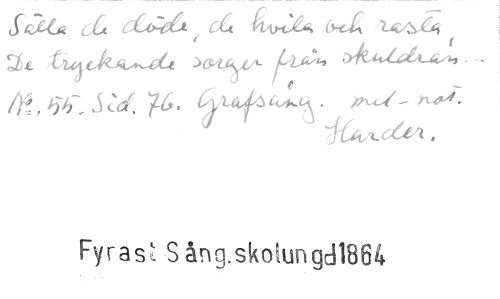 Sälla de döde, de hvila och rasta,
De tryckande sorger från skuldran...
No. 55. Sid. 76. Grafsång. mel-not.
Harder.
Fyrast Sång.skolungd1864